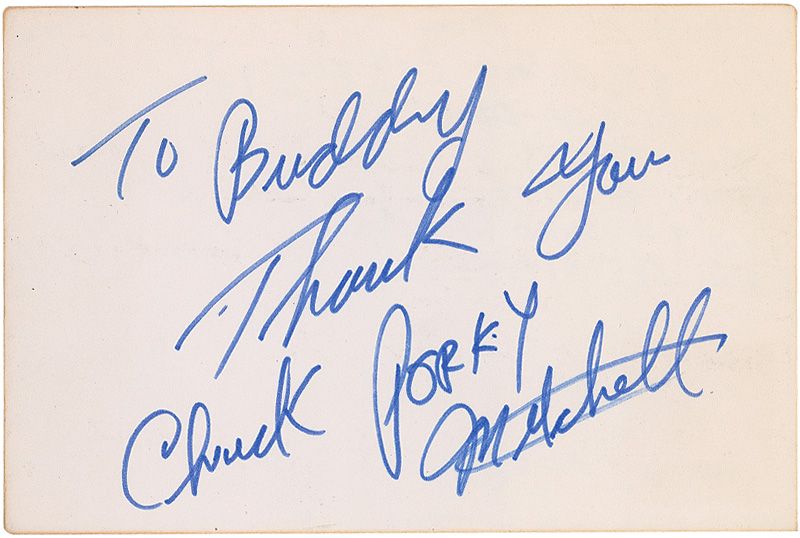 To Buddy
Thank You
Chuck PORKY
Mitchell